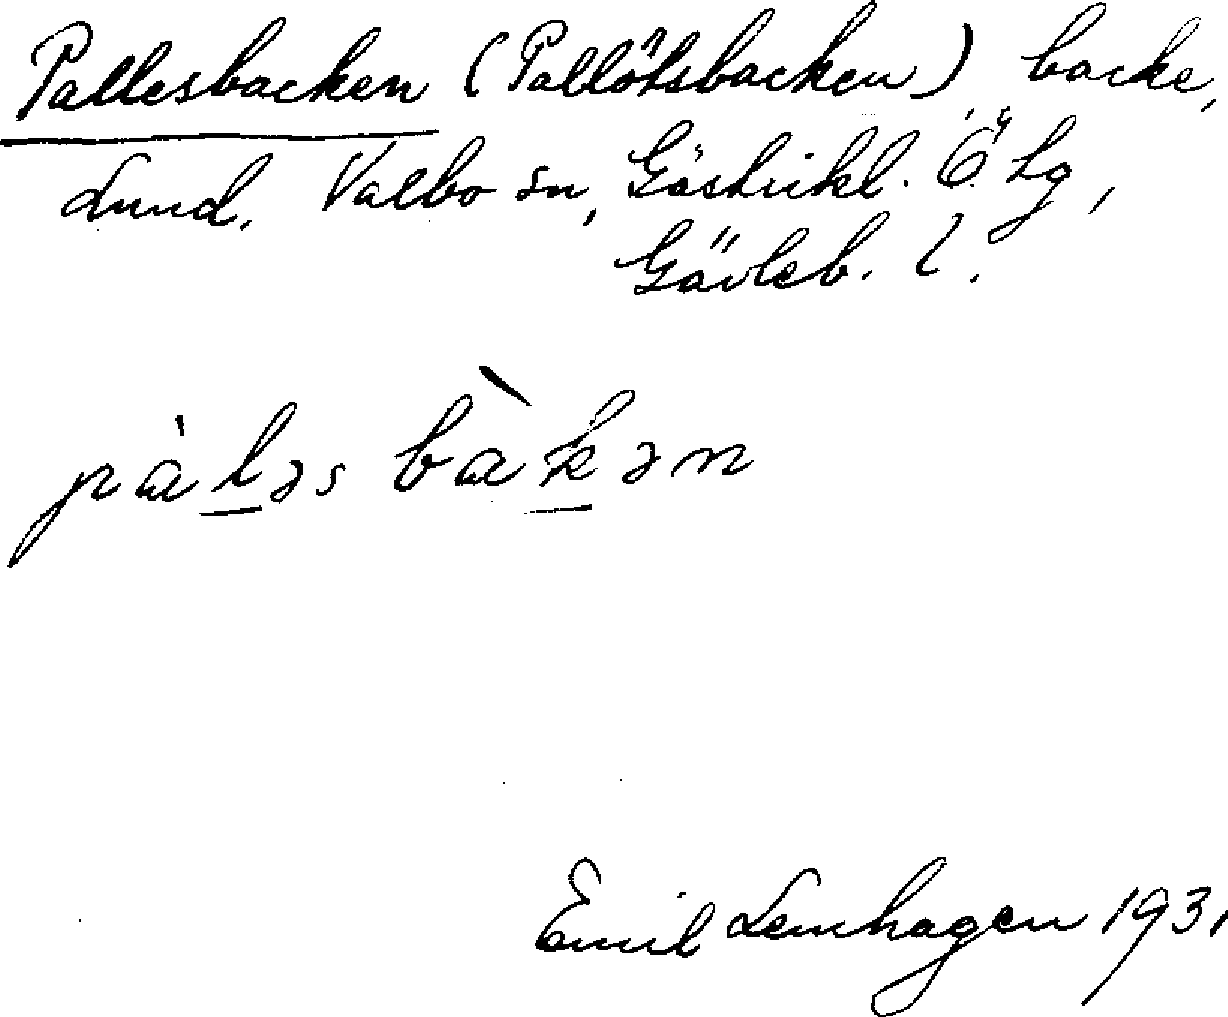 Pallesbacken (Pallötsbacken) backe,
Lund. Valbo sn, Gästrikl. Ö. tg,
Gävleb. l.
pàləs bàkən
Emil Lemhagen 1931